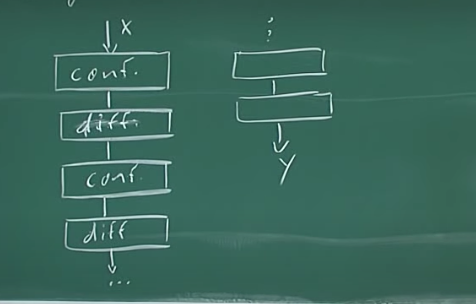 X
conf.
diff.
conf.
diff
...
⋮
Y